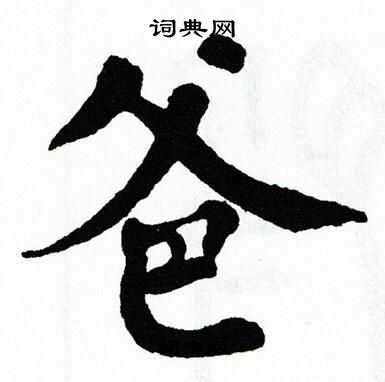 词典网
爸